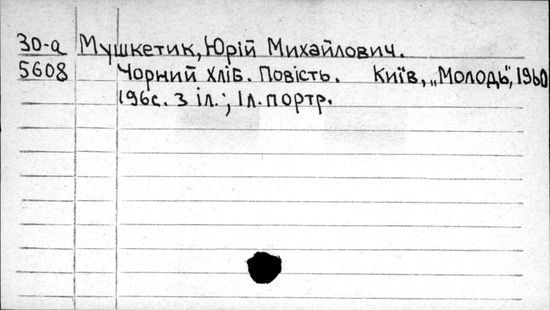 30-а Мушкетик, Юрій Михайлович.
5608 Чорний хліб. Повість. Київ, „Молодь", 1960
196с. з іл.; 1л. портр.